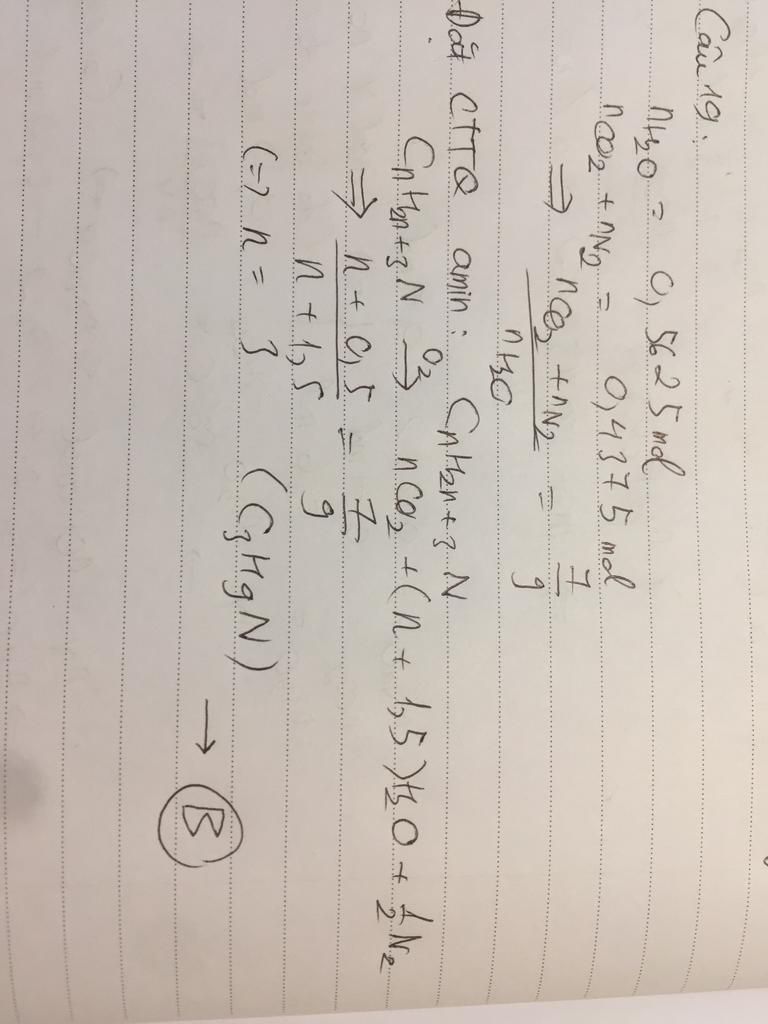 Câu 19.
nH2O = 0,5625 mol
nCO2 + nN2 = 0,4375 mol
⇒ (nCO2 + nN2)/nH2O = 7/9
Đặt CTTQ amin: CnH2n+3N
CnH2n+3N —O2→ nCO2 + (n + 1,5)H2O + 1/2 N2
⇒ (n + 0,5)/(n + 1,5) = 7/9
(=) n = 3 (C3H9N) → B